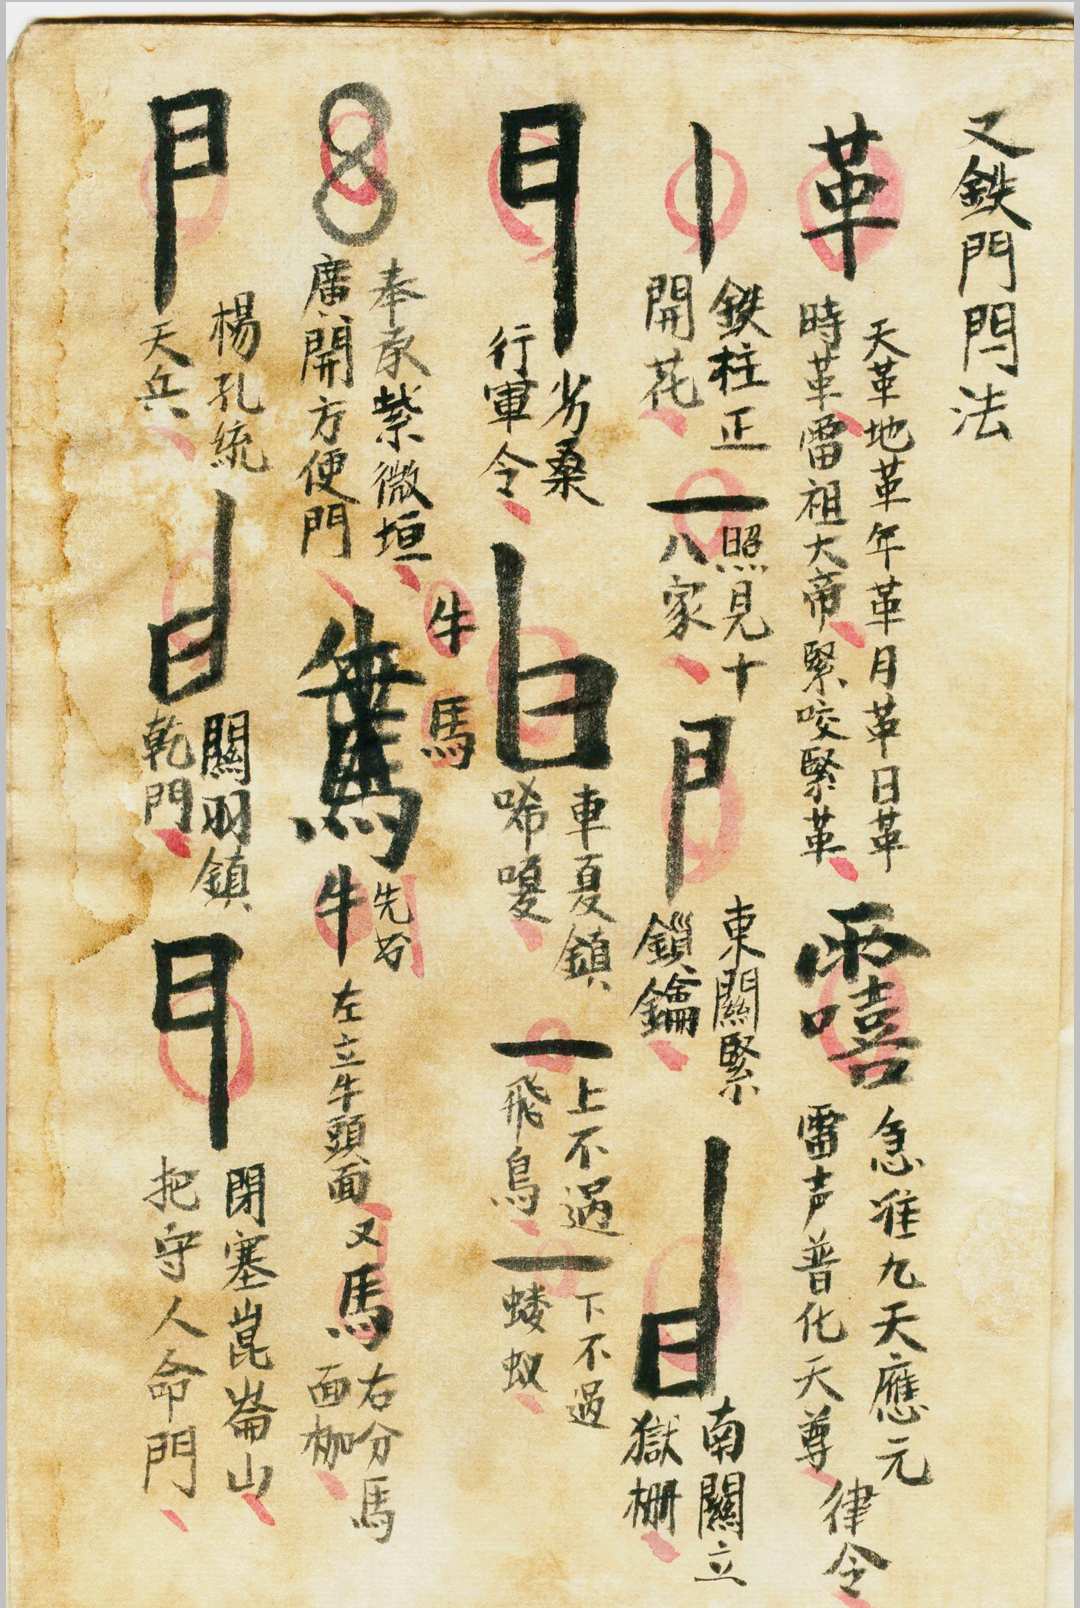 又鉄門閂法
革
天革地革年革月革日革
時革雷祖大帝緊咬緊革
急准九天應元
雷声普化天尊
律令
鉄柱正
開花
一
照見十
八家
東關緊
鎖鑰
南關立
獄柵
行軍令
車夏鎮
唏嗄
一
上不過
飛鳥
一
下不過
蟻
奉承紫微垣
廣開方便門
牛
馬
牛
左立牛頭面
又
馬
右分馬
面枷
楊孔統
天兵
關羽鎮
乾門
閉塞崑崙山
把守人命門